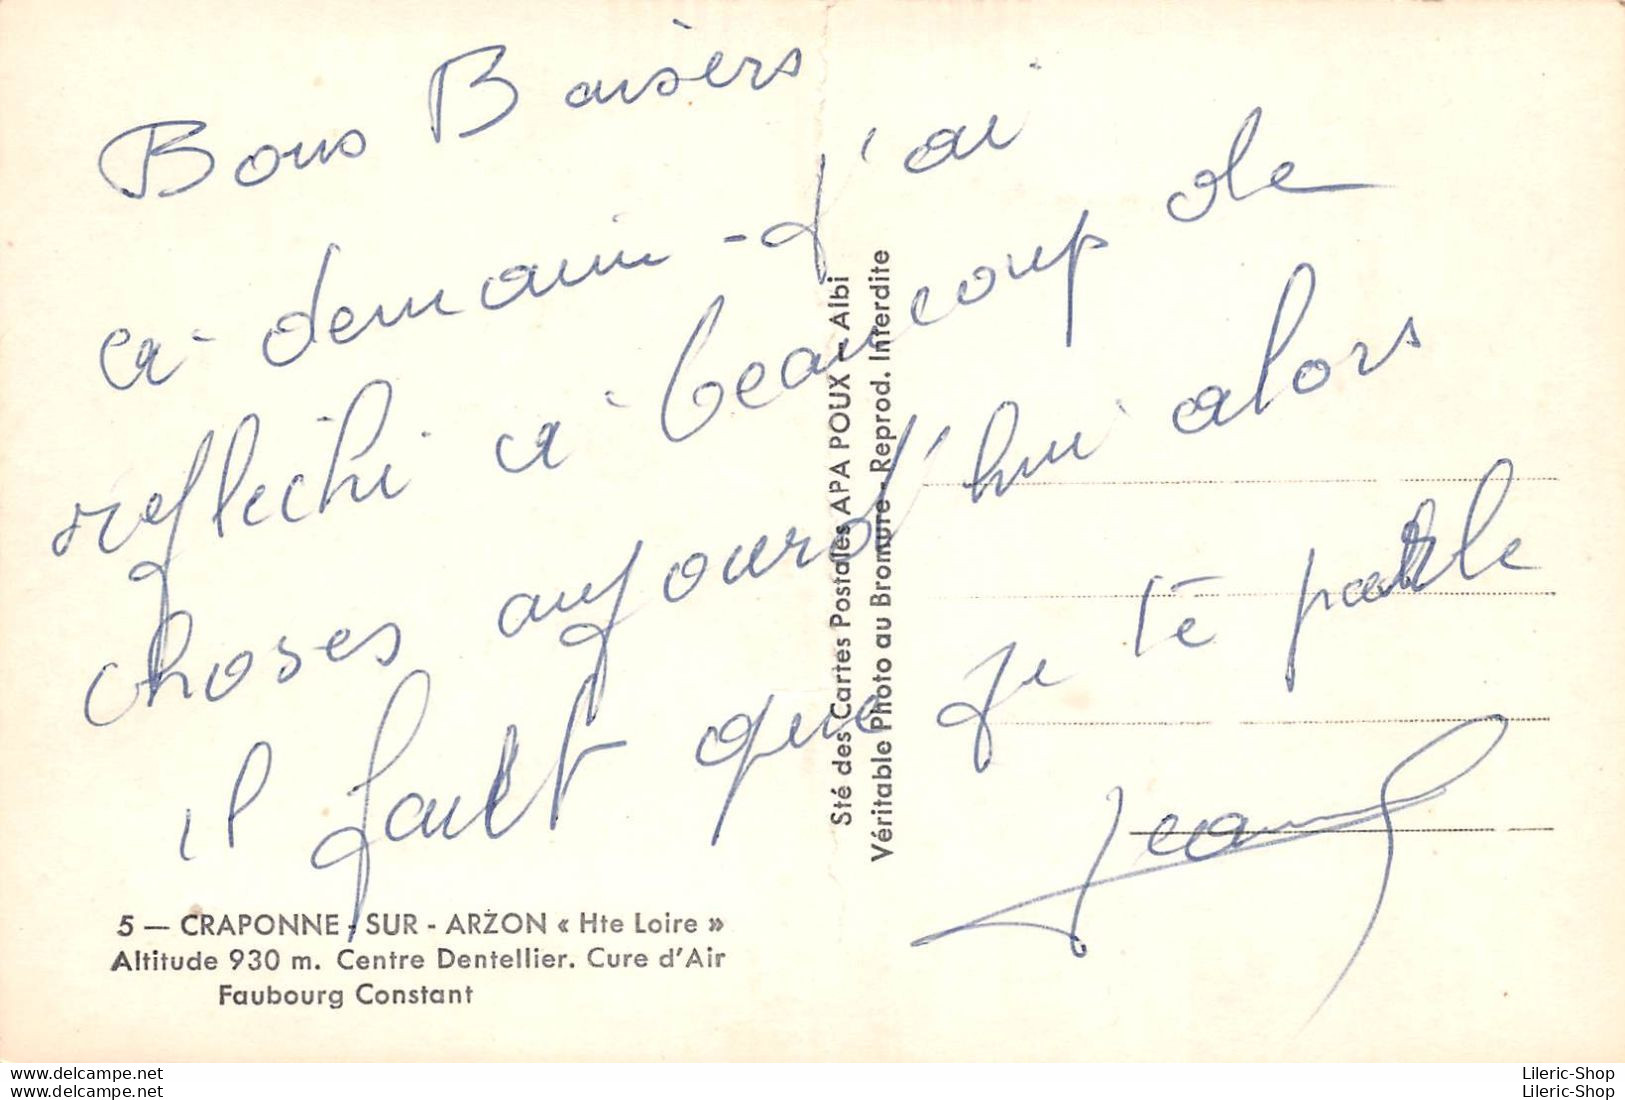 Bons Baisers
a demain - J'ai
reflechi a beaucoup de
choses aujourd'hui alors
il faut que je te parle
5 — CRAPONNE - SUR - ARZON « Hte Loire »
Altitude 930 m. Centre Dentellier. Cure d'Air
Faubourg Constant
Sté des Cartes Postales APA POUX — Albi
Véritable Photo au Bromure - Reprod. Interdite
www.delcampe.net
www.delcampe.net
Lileric-Shop
Lileric-Shop